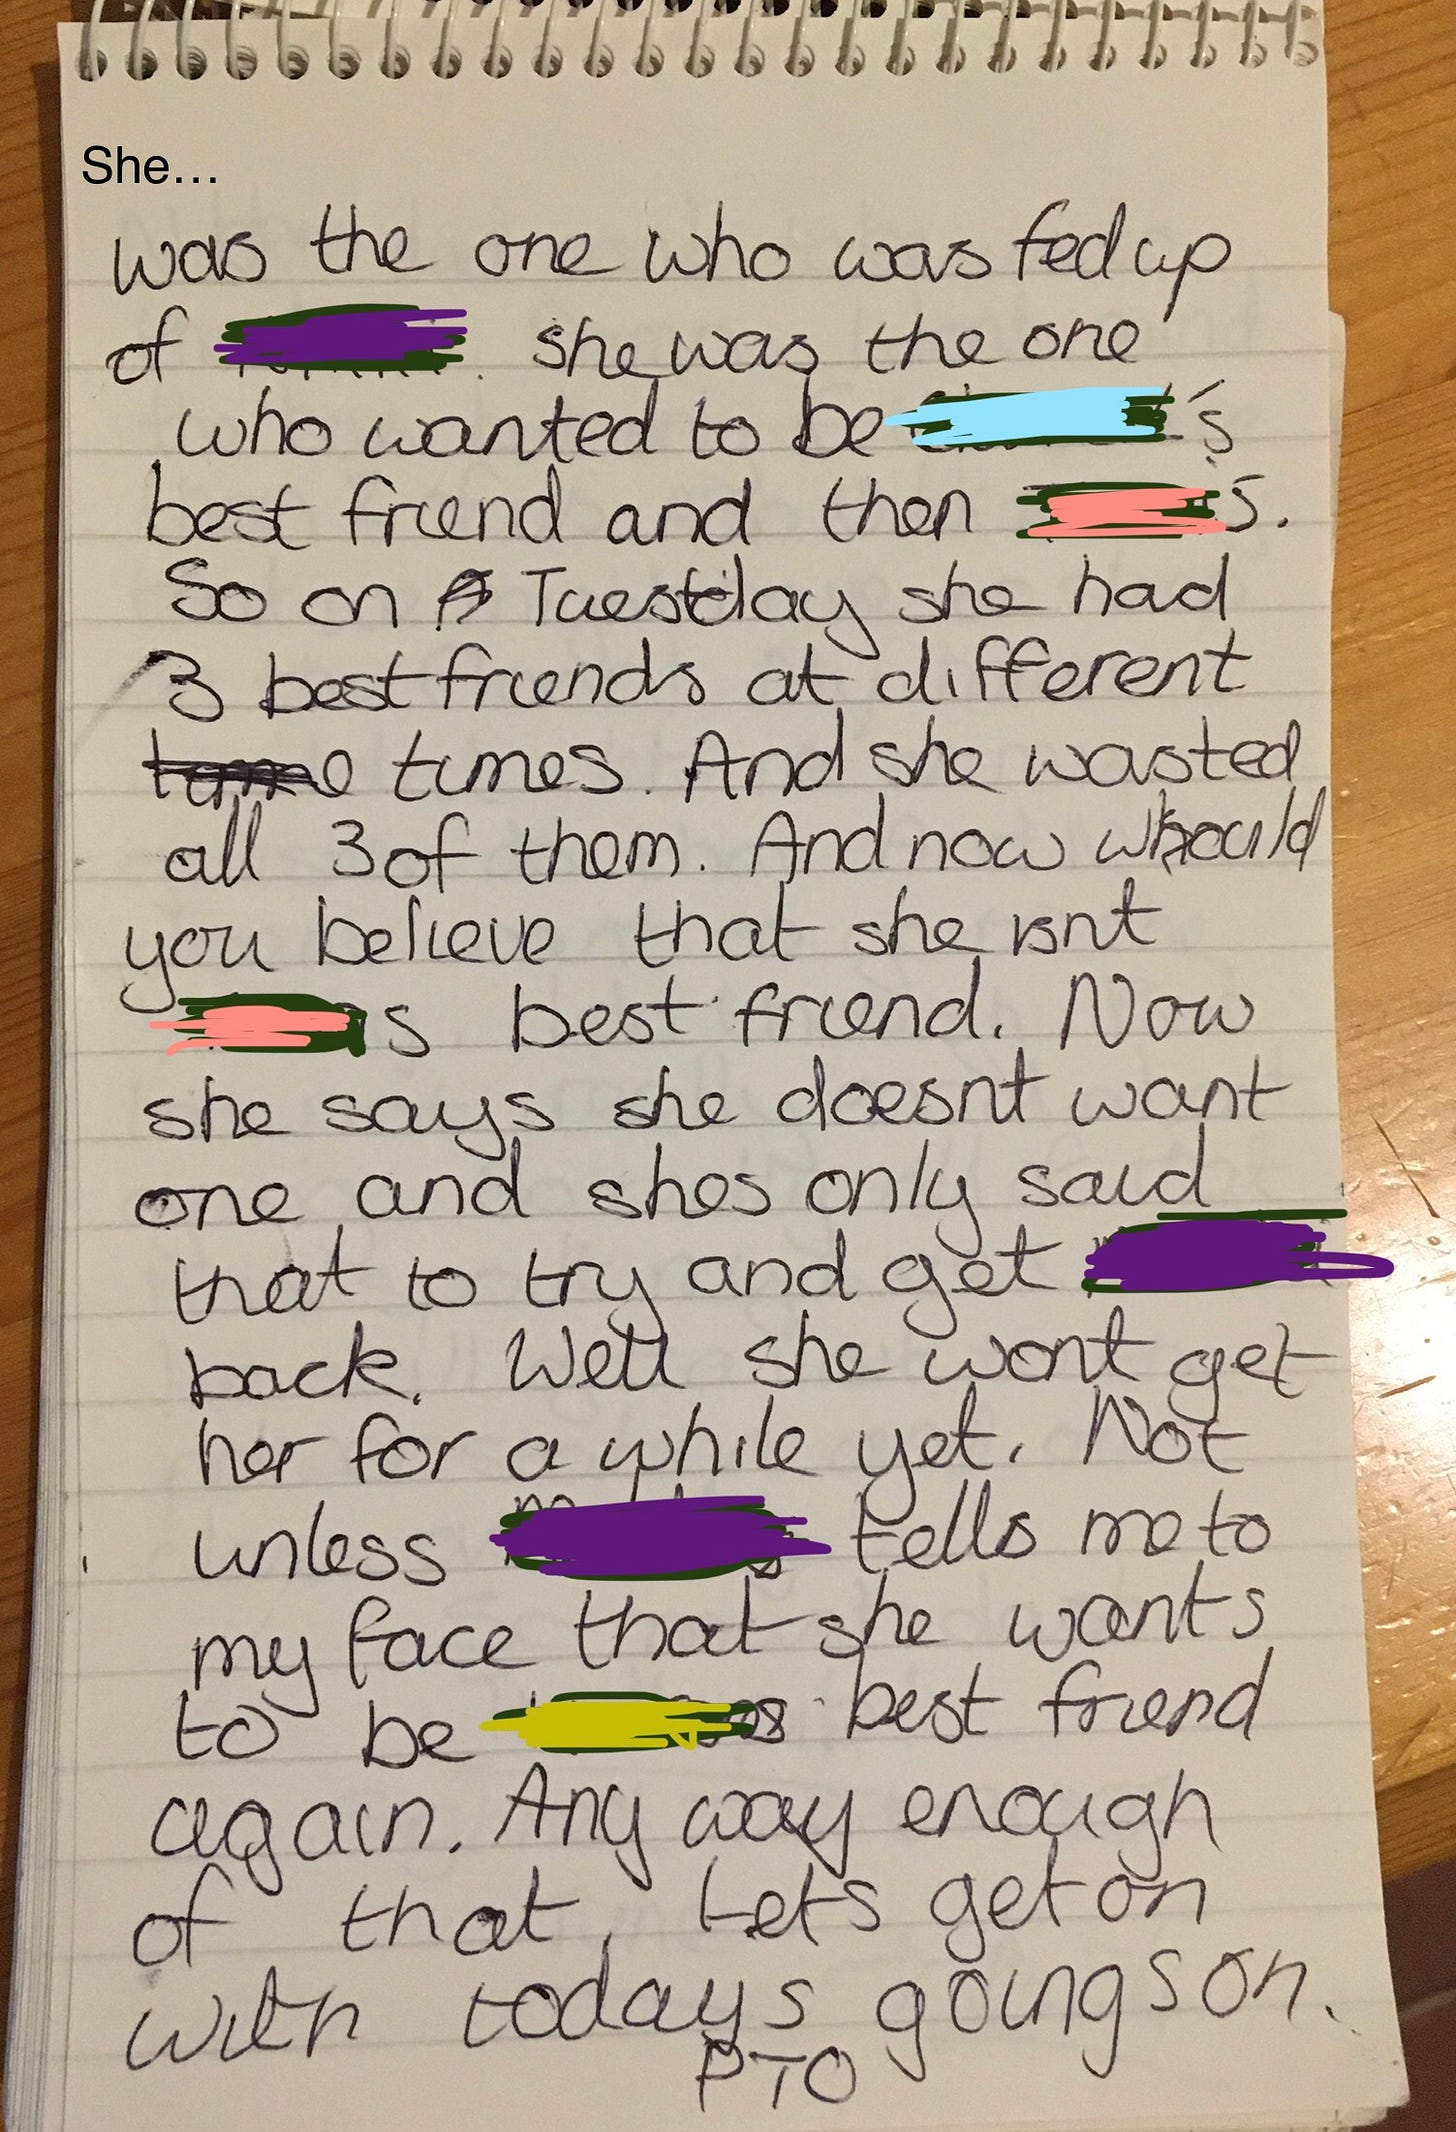 She...
was the one who was fed up
of . she was the one
who wanted to be 's
best friend and then s.
So on Tuesday she had
3 best friends at different
times. And she wasted
all 3 of them. And now whould
you believe that she isnt
s best friend. Now
she says she doesnt want
one and shes only said
that to try and get
back. Well she wont get
her for a while yet. Not
unless tells me to
my face that she wants
to be best friend
again. Any way enough
of that, Lets get on
with todays goings on.
PTO